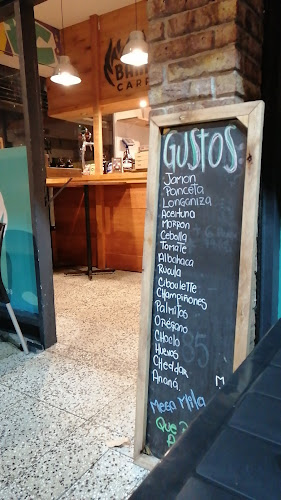 GUSTOS
JAMON
PANCETA
LONGANIZA
ACEITUNA
MORRON
CEBOLLA
TOMATE
ALBAHACA
RUCULA
CIBOULETTE
CHAMPIÑONES
PALMITOS
ORÉGANO
CHOCLO
HUEVOS
CHEDDAR
ANANÁ